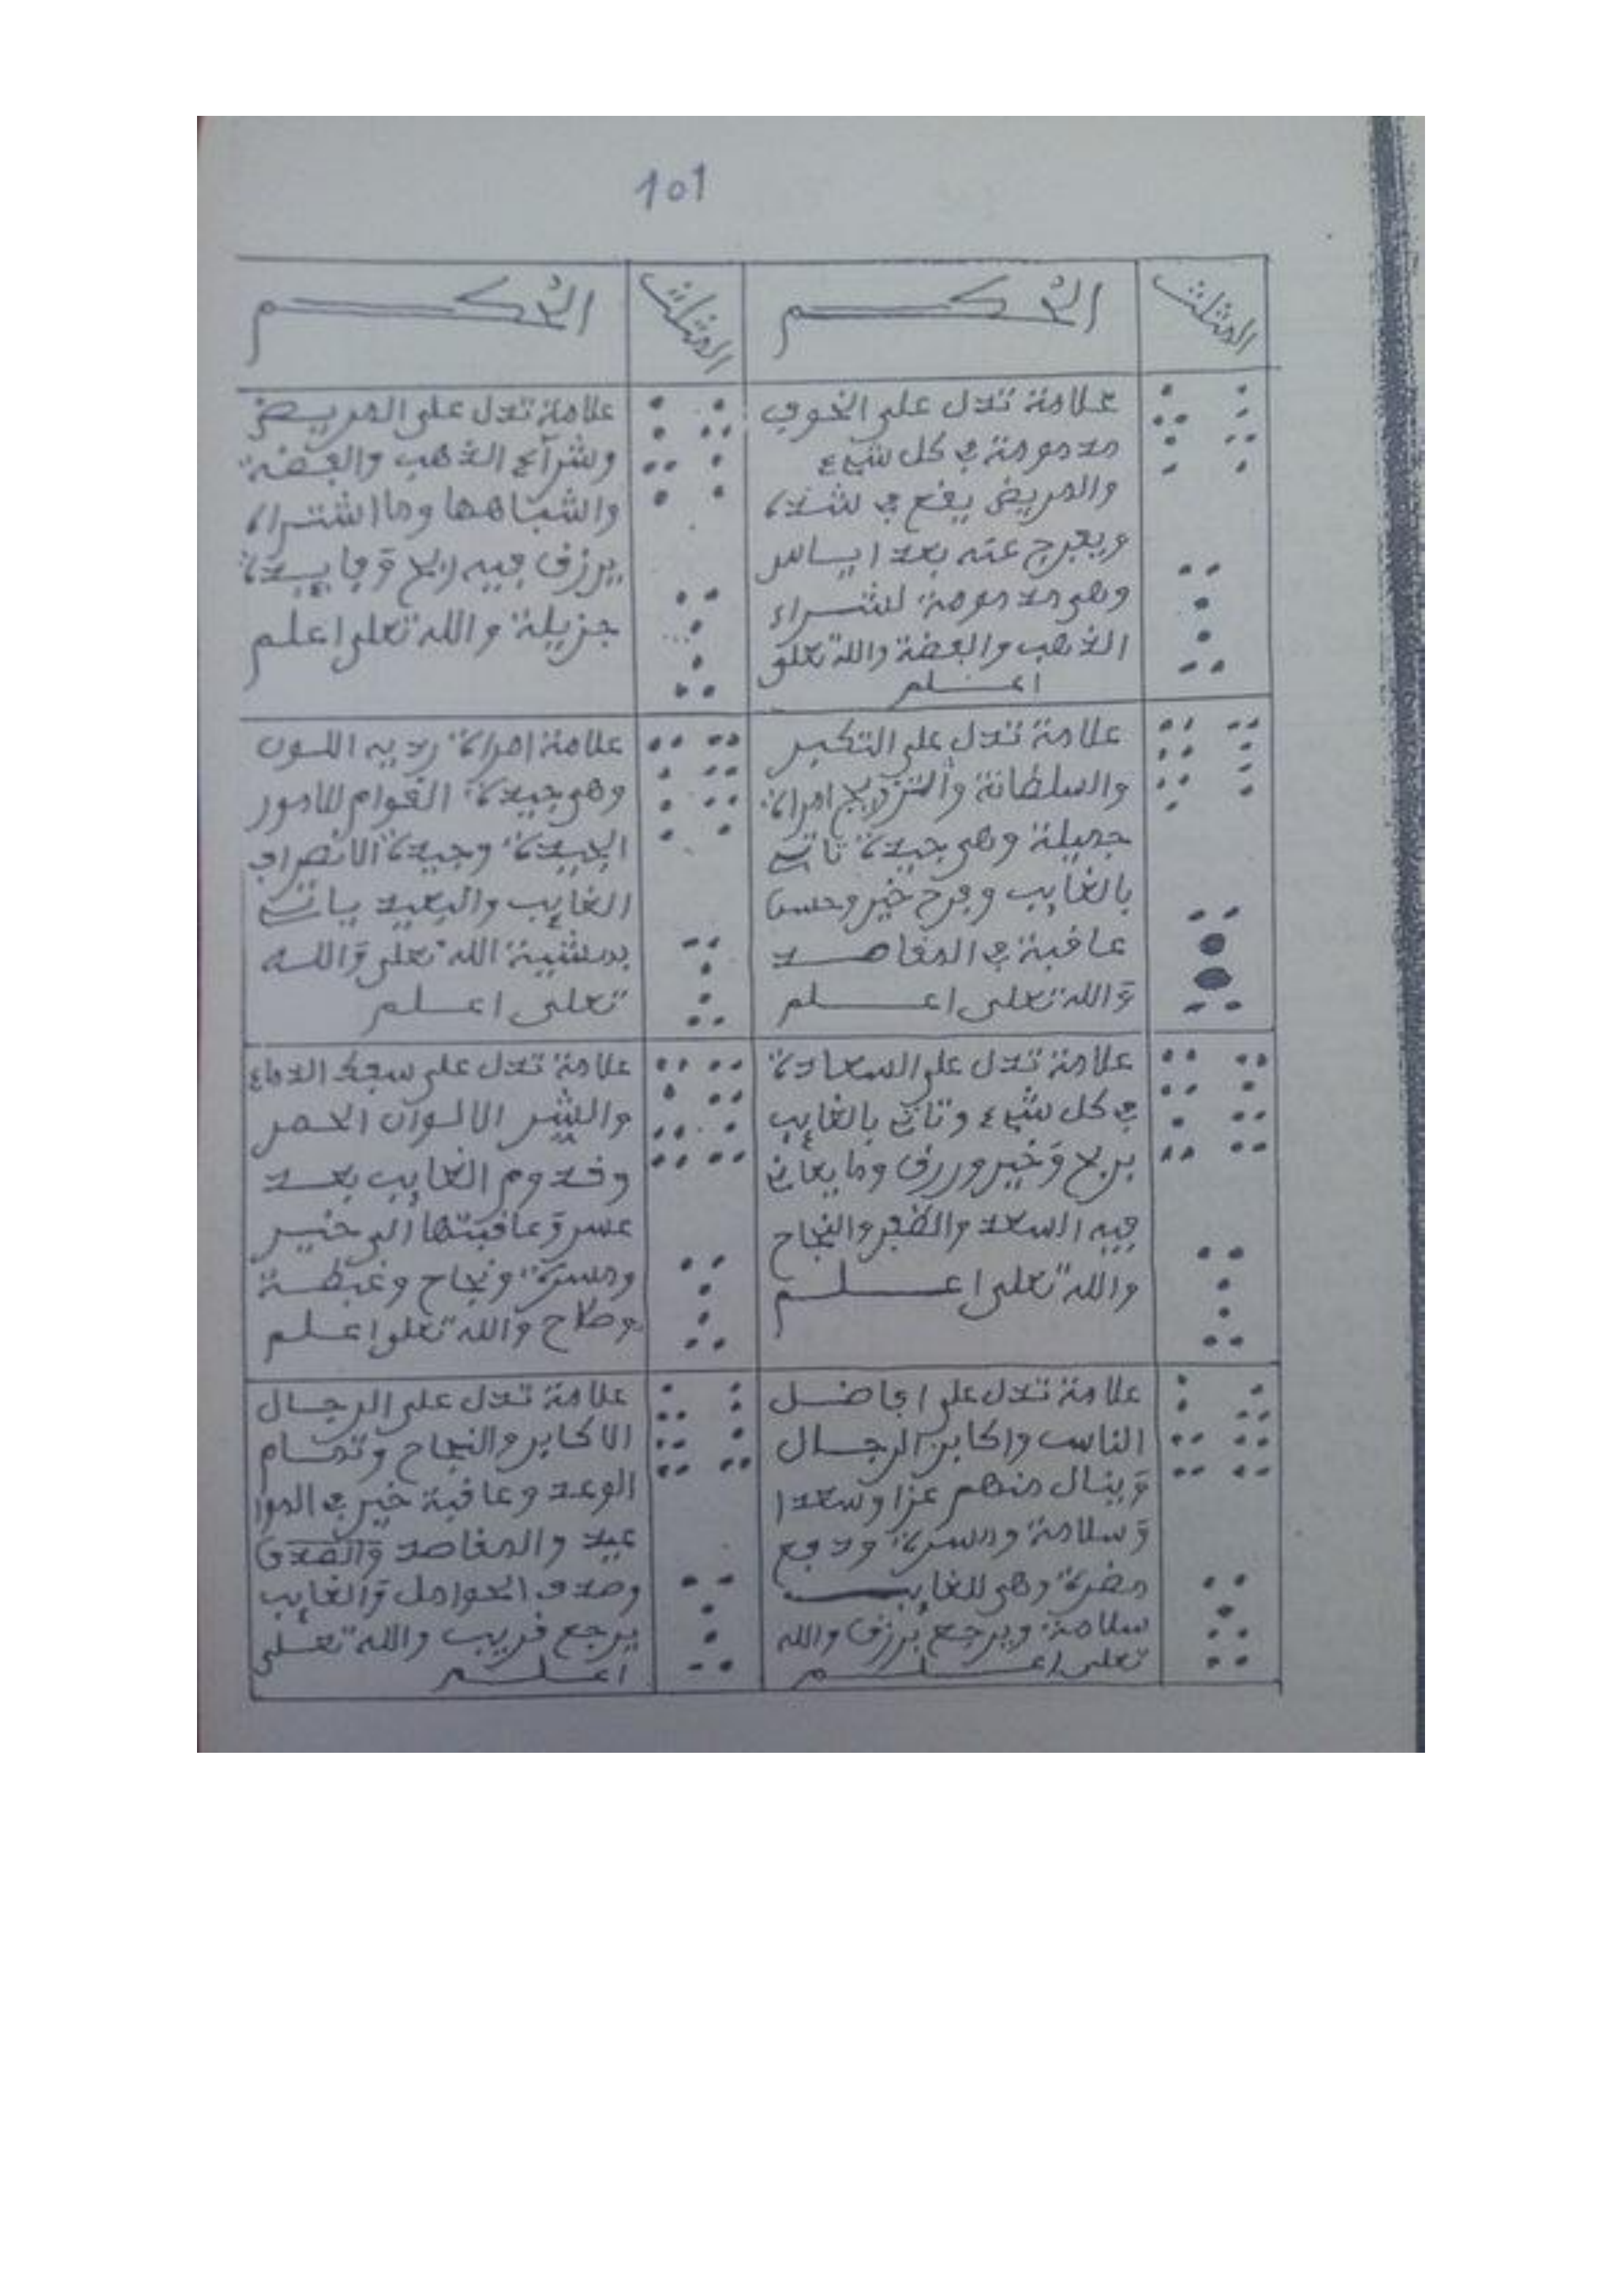 101
المثلث
الحكم
المثلث
الحكم
علامة تدل على الخوف
مذمومة في كل شيء
والمريض يقع في شدة
ويفرج عنه بعد اياس
وهي مذمومة لشراء
الذهب والفضة والله تعلى
اعلم
علامة تدل على المريض
وشراء الذهب والفضة
واشباهها وما اشتراه
يرزق فيه ربح وفايدة
جزيلة والله تعلى اعلم
علامة تدل على التكبر
والسلطانة والتزويج امراة
جميلة وهي جيدة تات
بالغايب وفرح خير وحسن
عافبة في المقاصد
والله تعلى اعلم
علامة امراة ردية اللون
وهي جيدة القوام للامور
الجيدة وجيدة الانصراف
الغايب والبعيد يات
بمشيية الله تعلى والله
تعلى اعلم
علامة تدل على السعادة
في كل شيء وتات بالغايب
بربح وخير ورزق وما يعان
فيه السعد والظفر والنجاح
والله تعلى اعلم
علامة تدل على سفك الدماء
والشر الالوان الحمر
وقدوم الغايب بعد
عسر وعاقبتها الى خير
ومسرة ونجاح وغبطة
وصلاح والله تعلى اعلم
علامة تدل على افاضل
الناس واكابر الرجال
وينال منهم عزا وسعدا
وسلامة ومسرة ودفع
مضرة وهي للغايب
سلامة ويرجع برزق والله
تعلى اعلم
علامة تدل على الرجال
الاكابر والنجاح وتمام
الوعد وعاقبة خير في الموا
عيد والمقاصد والصدق
وصدق الحوامل والغايب
يرجع قريب والله تعلى
اعلم